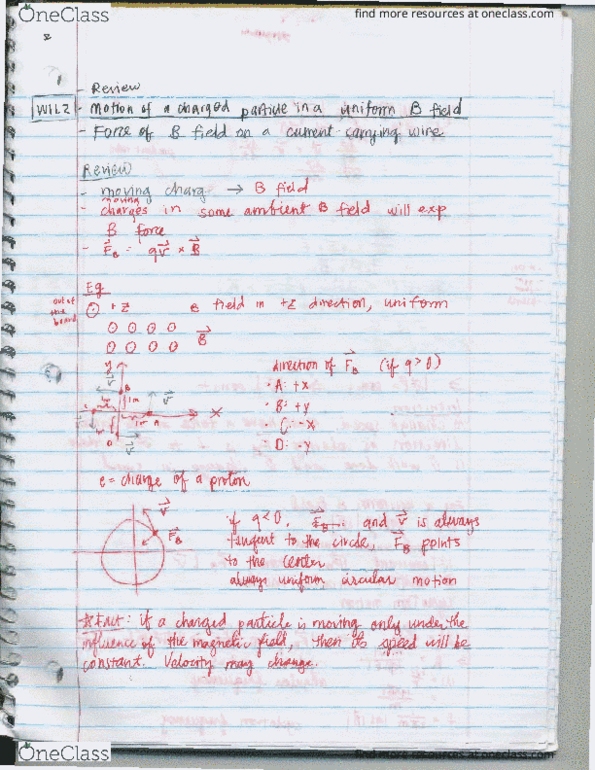 OneClass
find more resources at oneclass.com
- Review
W1L2 - Motion of a charged particle in a uniform B field
- Force of B field on a current carrying wire
Review
- moving charg → B field
- moving charges in some ambient B field will exp
B force
- F⃗B = qv⃗ × B⃗
Eg
out of the board ⊙ +z e field in +z direction, uniform
⊙ ⊙ ⊙ ⊙ B⃗
⊙ ⊙ ⊙ ⊙
y
direction of F⃗B (if q>0)
· A: +x
· B: +y
C: -x
D: -y
x
e = charge of a proton
v⃗
F⃗B
if q<0, F⃗B and v⃗ is always
tangent to the circle, F⃗B points
to the center
always uniform circular motion
*Fact: if a charged particle is moving only under the
influence of the magnetic field, then its speed will be
constant. Velocity may change.
OneClass
find more resources at oneclass.com